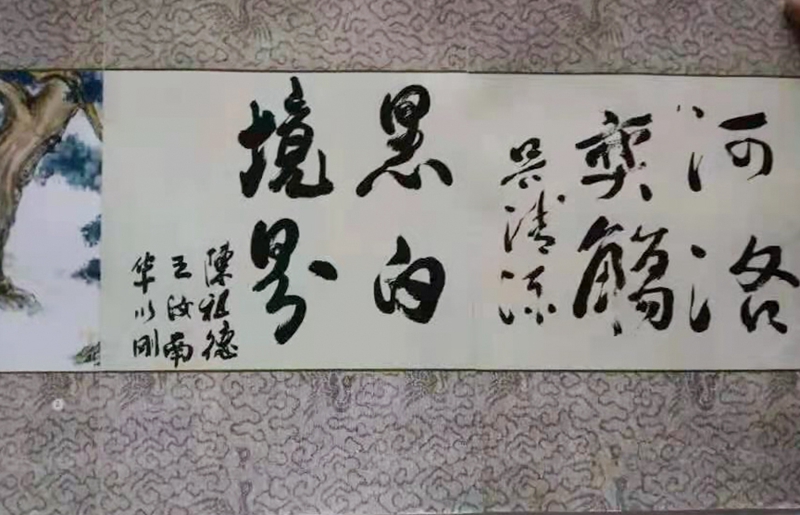 河洛
奕觞
吴清源
黑白
境界
陳祖德
王汝南
华以刚